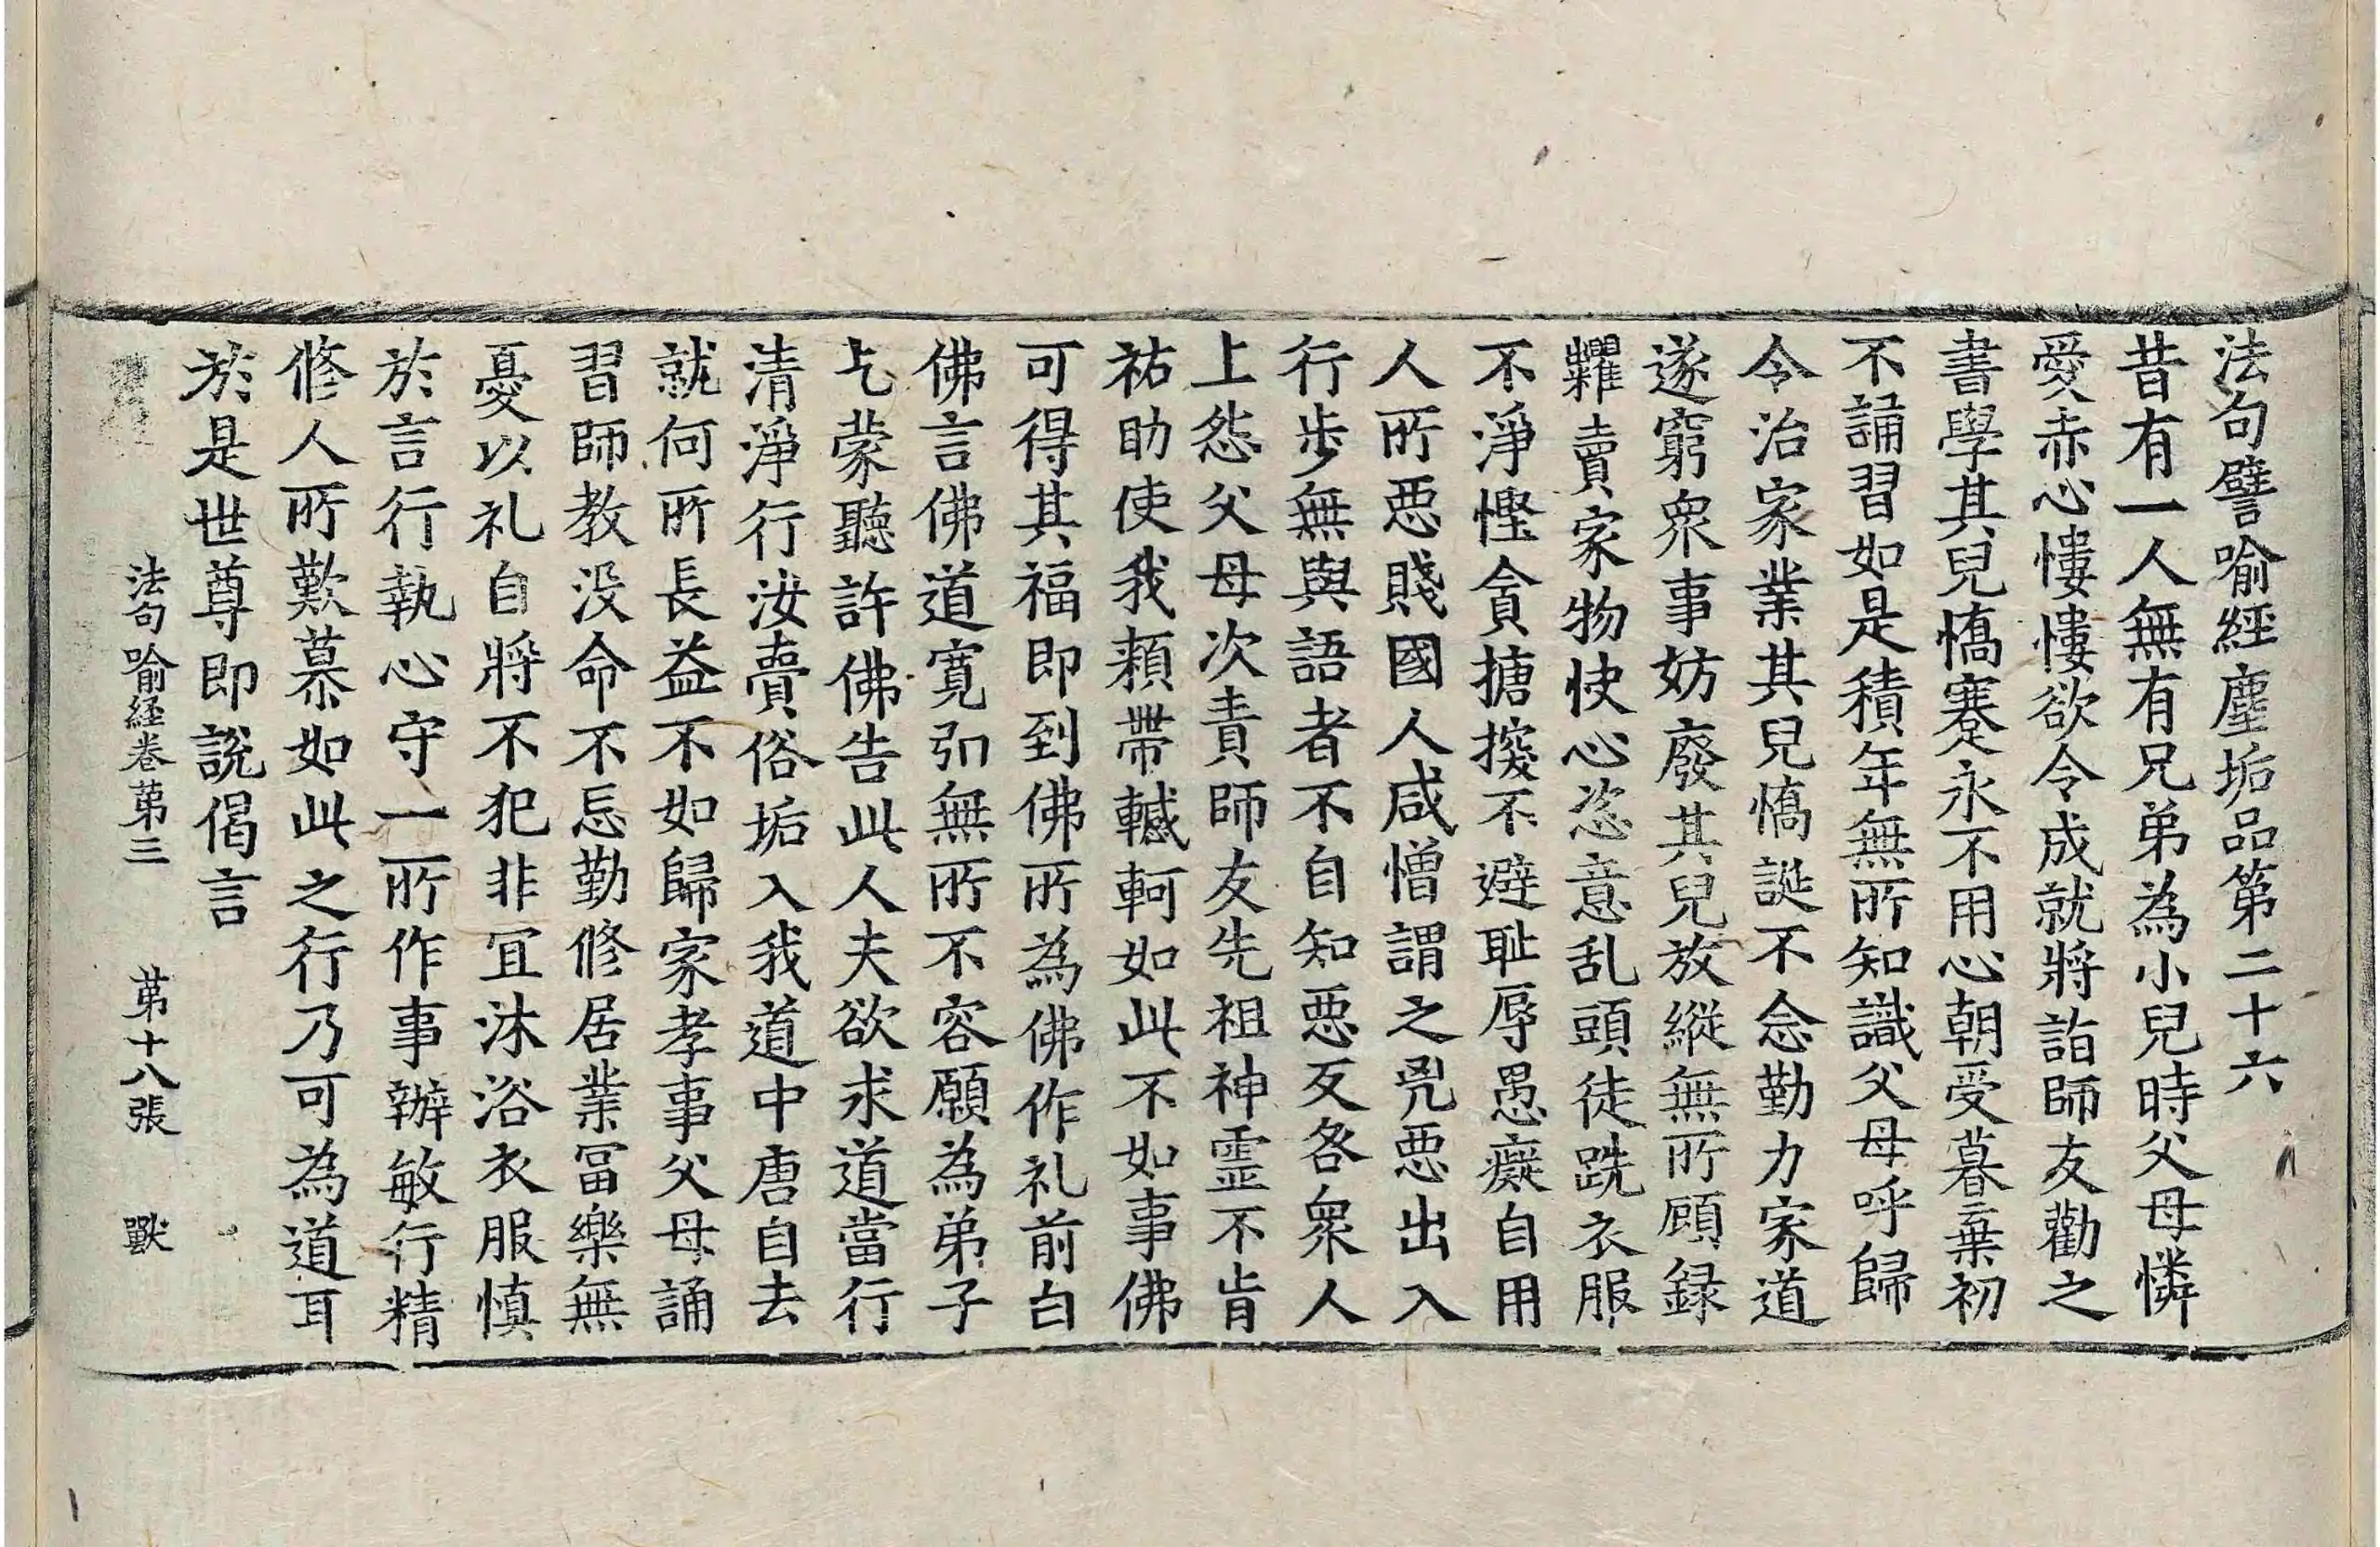 法句譬喻經塵垢品第二十六
昔有一人無有兄弟為小兒時父母憐
愛赤心慺慺欲令成就將詣師友勸之
書學其兒憍蹇永不用心朝受暮棄初
不誦習如是積年無所知識父母呼歸
令治家業其兒憍誕不念勤力家道
遂窮衆事妨廢其兒放縱無所顧録
糶賣家物快心恣意乱頭徒跣衣服
不淨慳貪搪揬不避耻辱愚癡自用
人所惡賤國人咸憎謂之兇惡出入
行步無與語者不自知惡反咎衆人
上怨父母次責師友先祖神霊不肯
祐助使我頼帶轗軻如此不如事佛
可得其福即到佛所為佛作礼前白
佛言佛道寛弘無所不容願為弟子
乞蒙聽許佛告此人夫欲求道當行
清淨行汝賣俗垢入我道中唐自去
就何所長益不如歸家孝事父母誦
習師教没命不忘勤修居業冨樂無
憂以礼自將不犯非冝沐浴衣服慎
於言行執心守一所作事辦敏行精
修人所歎慕如此之行乃可為道耳
於是世尊即說偈言
法句喻経卷苐三 苐十八張 獸